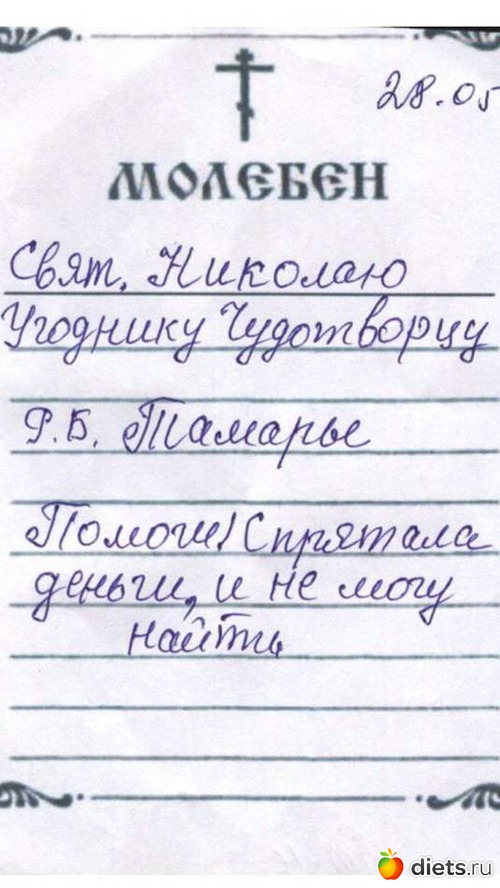 28.05
МОЛЕБЕН
Свят. Николаю
Угоднику Чудотворцу
Р.Б. Тамарье
Помоги! Спрятала
деньги, и не могу
найти
diets.ru